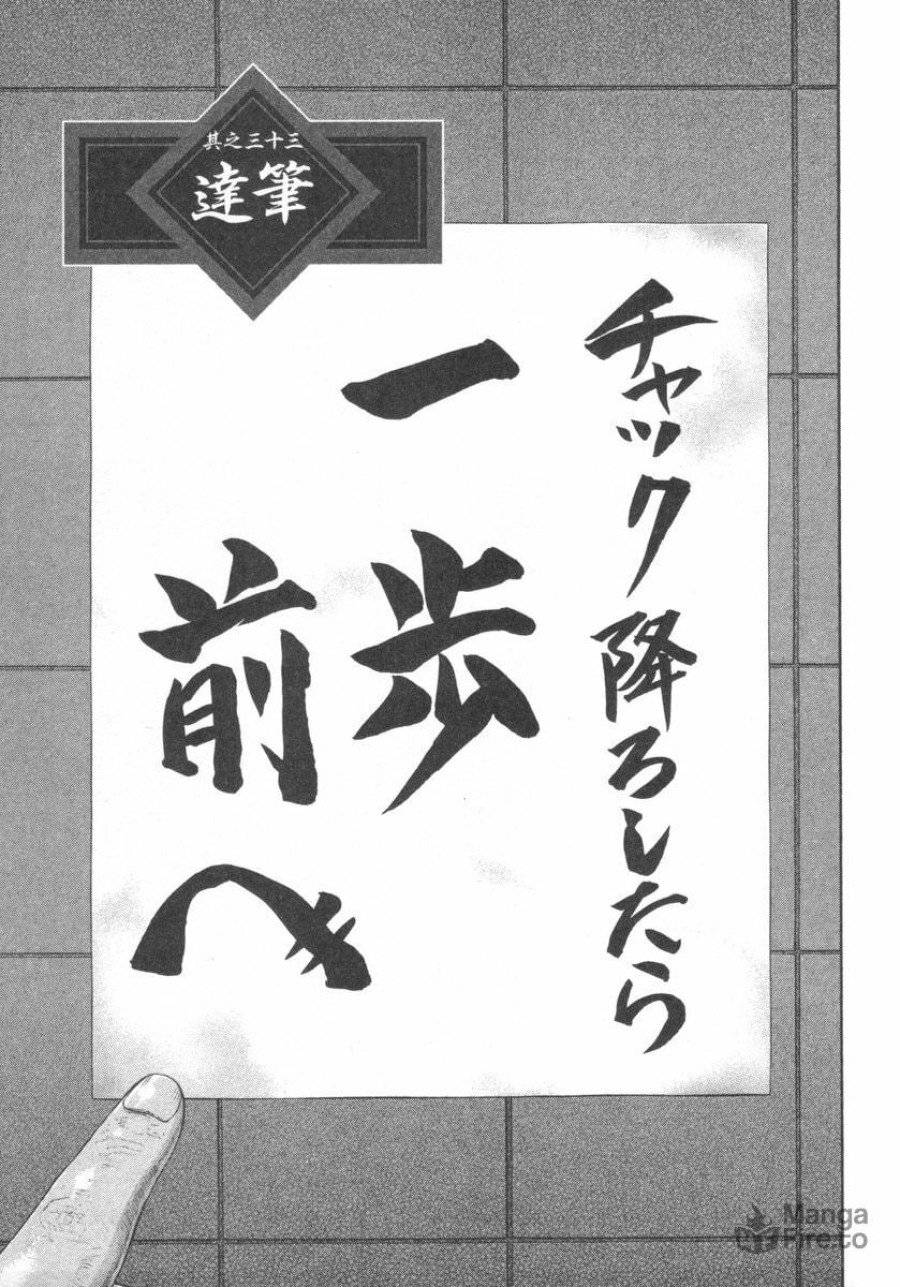 其之三十三
達筆
チャック降ろしたら
一歩
前へ
Manga
Fire.to